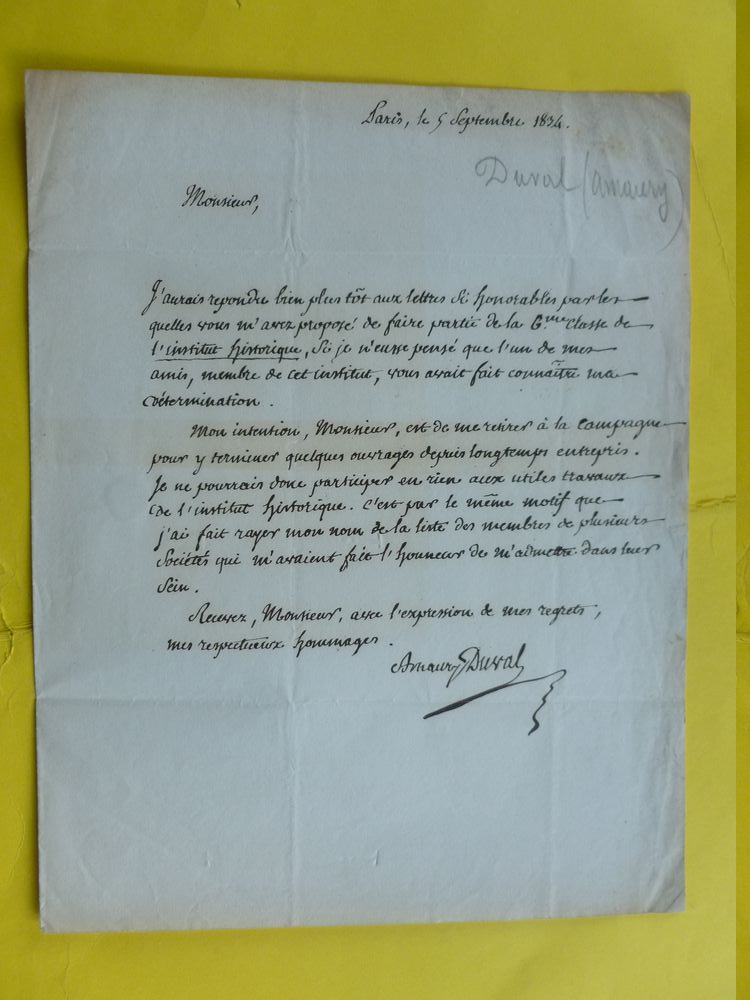 Paris, le 5 Septembre 1834.
Duval (Amaury)
Monsieur,
J'aurais repondu bien plus tôt aux lettres si honorables par les-
quelles vous m'avez proposé de faire partie de la 6me classe de
l'institut historique, si je n'eusse pensé que l'un de mes
amis, membre de cet institut, vous avait fait connaître ma
détermination.
Mon intention, Monsieur, est de me retirer à la campagne
pour y terminer quelques ouvrages depuis longtemps entrepris.
Je ne pourrais donc participer en rien aux utiles travaux
de l'institut historique. C'est par le même motif que
j'ai fait rayer mon nom de la liste des membres de plusieurs
Sociétés qui m'avaient fait l'honneur de m'admettre dans leur
sein.
Recevez, Monsieur, avec l'expression de mes regrets,
mes respectueux hommages.
Amaury Duval